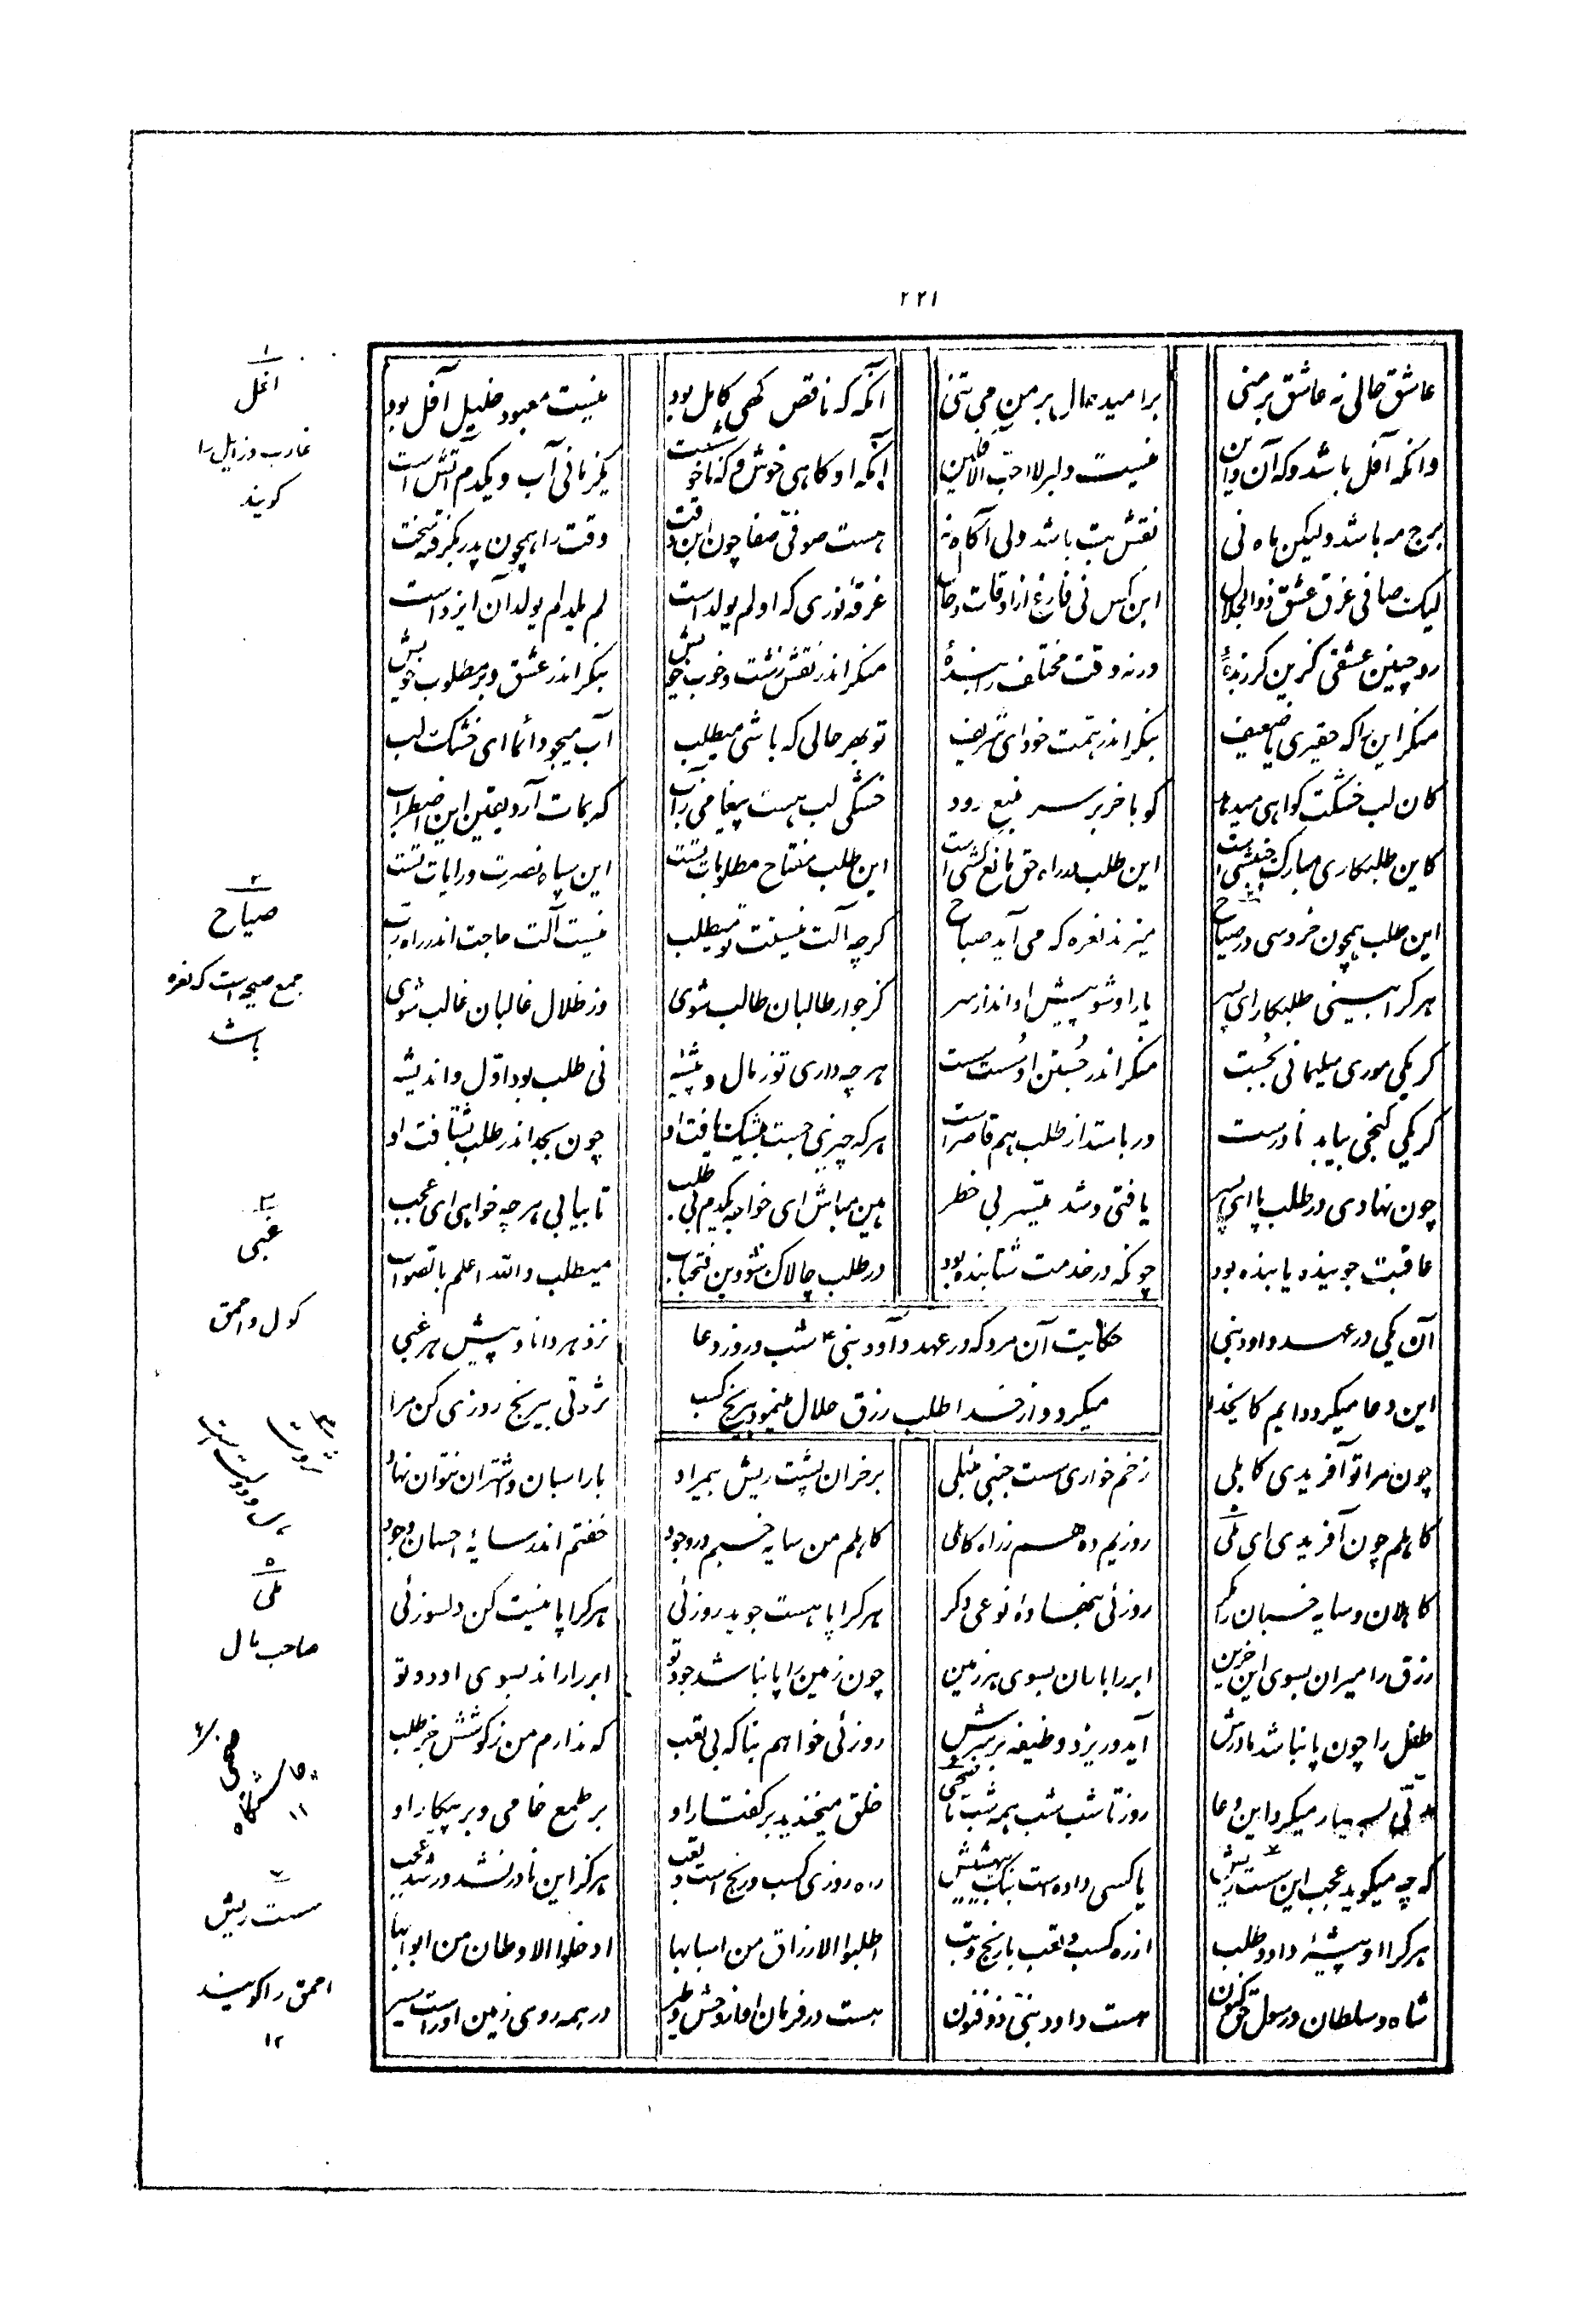 ۲۲۱
عاشق حالی نه عاشق بر منی برامید حال بر من می تنی آنکه که ناقص کهی کامل بود نیست معبود خلیل آفل بود
وانکه آفل باشد و که آن و این نیست دلبر لا احب الافلین آنکه او کاهی خوش و که ناخوشست یکزمانی آب و یکدم آتش است
برج مه باشد ولیکن ماه نی نقش بت باشد ولی آکاه نه هست صوفی صفا چون ابن وقت وقت را همچون پدر بکرفته سخت
لیک صافی غرق عشق ذوالجلال ابن کس نی فارغ از اوقات و حال غرقهٔ نوری که او لم یولد است لم یلد لم یولد آن ایزد است
رو چنین عشقی کزین کر زندهٔ ورنه وقت مختلف را بندهٔ منکر اندر نقش زشت و خوب خویش بنکر اندر عشق و بر مطلوب خویش
منکر این را که حقیری یا ضعیف بنکر اندر همت خود ای شریف تو بهر حالی که باشی میطلب آب میجو دائما ای خشک لب
کان لب خشکت کواهی میدهد کو باخر بر سر منبع رود خشکی لب هست پیغامی ز آب که بمات آرد یقین این اضطراب
کاین طلبکاری مبارک جنبشی است این طلب در راه حق مانع کشی است این طلب مفتاح مطلوبات تست این سپاه نصرت و رایات تست
این طلب همچون خروسی در صیاح میزند نعره که می آید صباح کرچه آلت نیستت تو میطلب نیست آلت حاجت اندر راه رب
هر کرا بینی طلبکار ای پسر یار او شو پیش او انداز سر کز جوار طالبان طالب شوی وز ظلال غالبان غالب شوی
کر یکی موری سلیمانی بجست منکر اندر جستن او سست سست هر چه داری تو ز مال و پیشه نی طلب بود اول و اندیشه
کر یکی کنجی بیابد نادرست ور باستد از طلب هم قاصر است هر که چیزی جست بیشک یافت او چون بجد اندر طلب بشتافت او
چون نهادی در طلب پا ای پسر یافتی و شد میسر بی خطر هین مباش ای خواجه یکدم بی طلب تا بیابی هر چه خواهی ای عجب
عاقبت جوینده یابنده بود چونکه در خدمت شتابنده بود در طلب چالاک شو وین فتحباب میطلب والله اعلم بالصواب
حکایت آن مرد که در عهد داود نبی ع شب و روز دعا
میکرد و از خدا طلب رزق حلال مینمود بیرنج کسب
آن یکی در عهد داود نبی نزد هر دانا و پیش هر غبی
این دعا میکرد دایم کایخدا ثروتی بیرنج روزی کن مرا
چون مرا تو آفریدی کاهلی زخم خواری سست جنبی منبلی بر خران پشت ریش بیمراد بار اسبان و شتران نتوان نهاد
کاهلم چون آفریدی ای ملی روزیم ده هم ز راه کاهلی کاهلم من سایه خسبم در وجود خفتم اندر سایهٔ احسان و جود
کاهلان و سایه خسبان را مکر روزئی بنهادهٔ نوعی دکر هر کرا پا هست جوید روزئی هر کرا پا نیست کن دلسوزئی
رزق را میران بسوی این حزین ابر را باران بسوی هر زمین چون زمین را پا نباشد جود تو ابر را راند بسوی او دو تو
طفل را چون پا نباشد مادرش آید و ریزد وظیفه بر سرش روزئی خواهم بناکه بی تعب که ندارم من ز کوشش جز طلب
مدتی بسیار میکرد این دعا روز تا شب شب همه شب تا ضحی خلق میخندید بر کفتار او بر طمع خامی و بر پیکار او
که چه میکوید عجب این سست ریش یا کسی داده است بنک بیهشیش راه روزی کسب و رنج است و تعب هرکز این نادر نشد ور شد عجب
هر کرا او پیشهٔ داد و طلب از ره کسب و تعب با رنج و تب اطلبوا الارزاق من اسبابها ادخلوا الاوطان من ابوابها
شاه و سلطان و رسول حق کنون هست داود نبی ذو فنون هست در فرمان او از وحش و طیر در همه روی زمین او راست سیر
۱
افل
غارب و زایل را
کویند
۲
صیاح
جمع صیحه است که نعره
باشد
۳
غبی
کول و احمق
۵
ملی
صاحب مال
ضحی
چاشتکاه
۱۱
سست ریش
احمق را کویند
۱۲